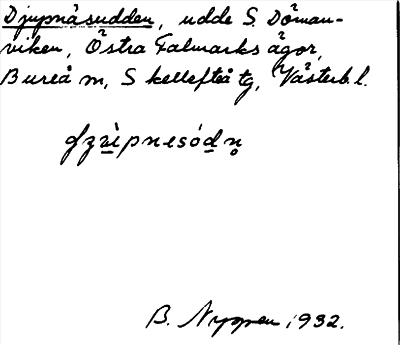 Djupnäsudden, udde S. Döman-
viken, Östra Falmarks ägor,
Bureå sn, Skellefteå tg, Västerb. l.
B. Nyppen, 1932.